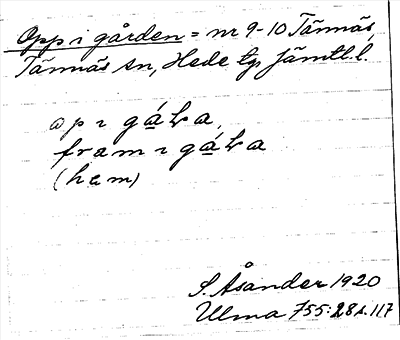 Opp i gården = nr 9-10 Tännäs,
Tännäs sn, Hede tg, Jämtl. l.
ap ı gáɫa,
fram ı gáɫa
(hem)
S. Åsander 1920
Ulma 755:28 s. 117